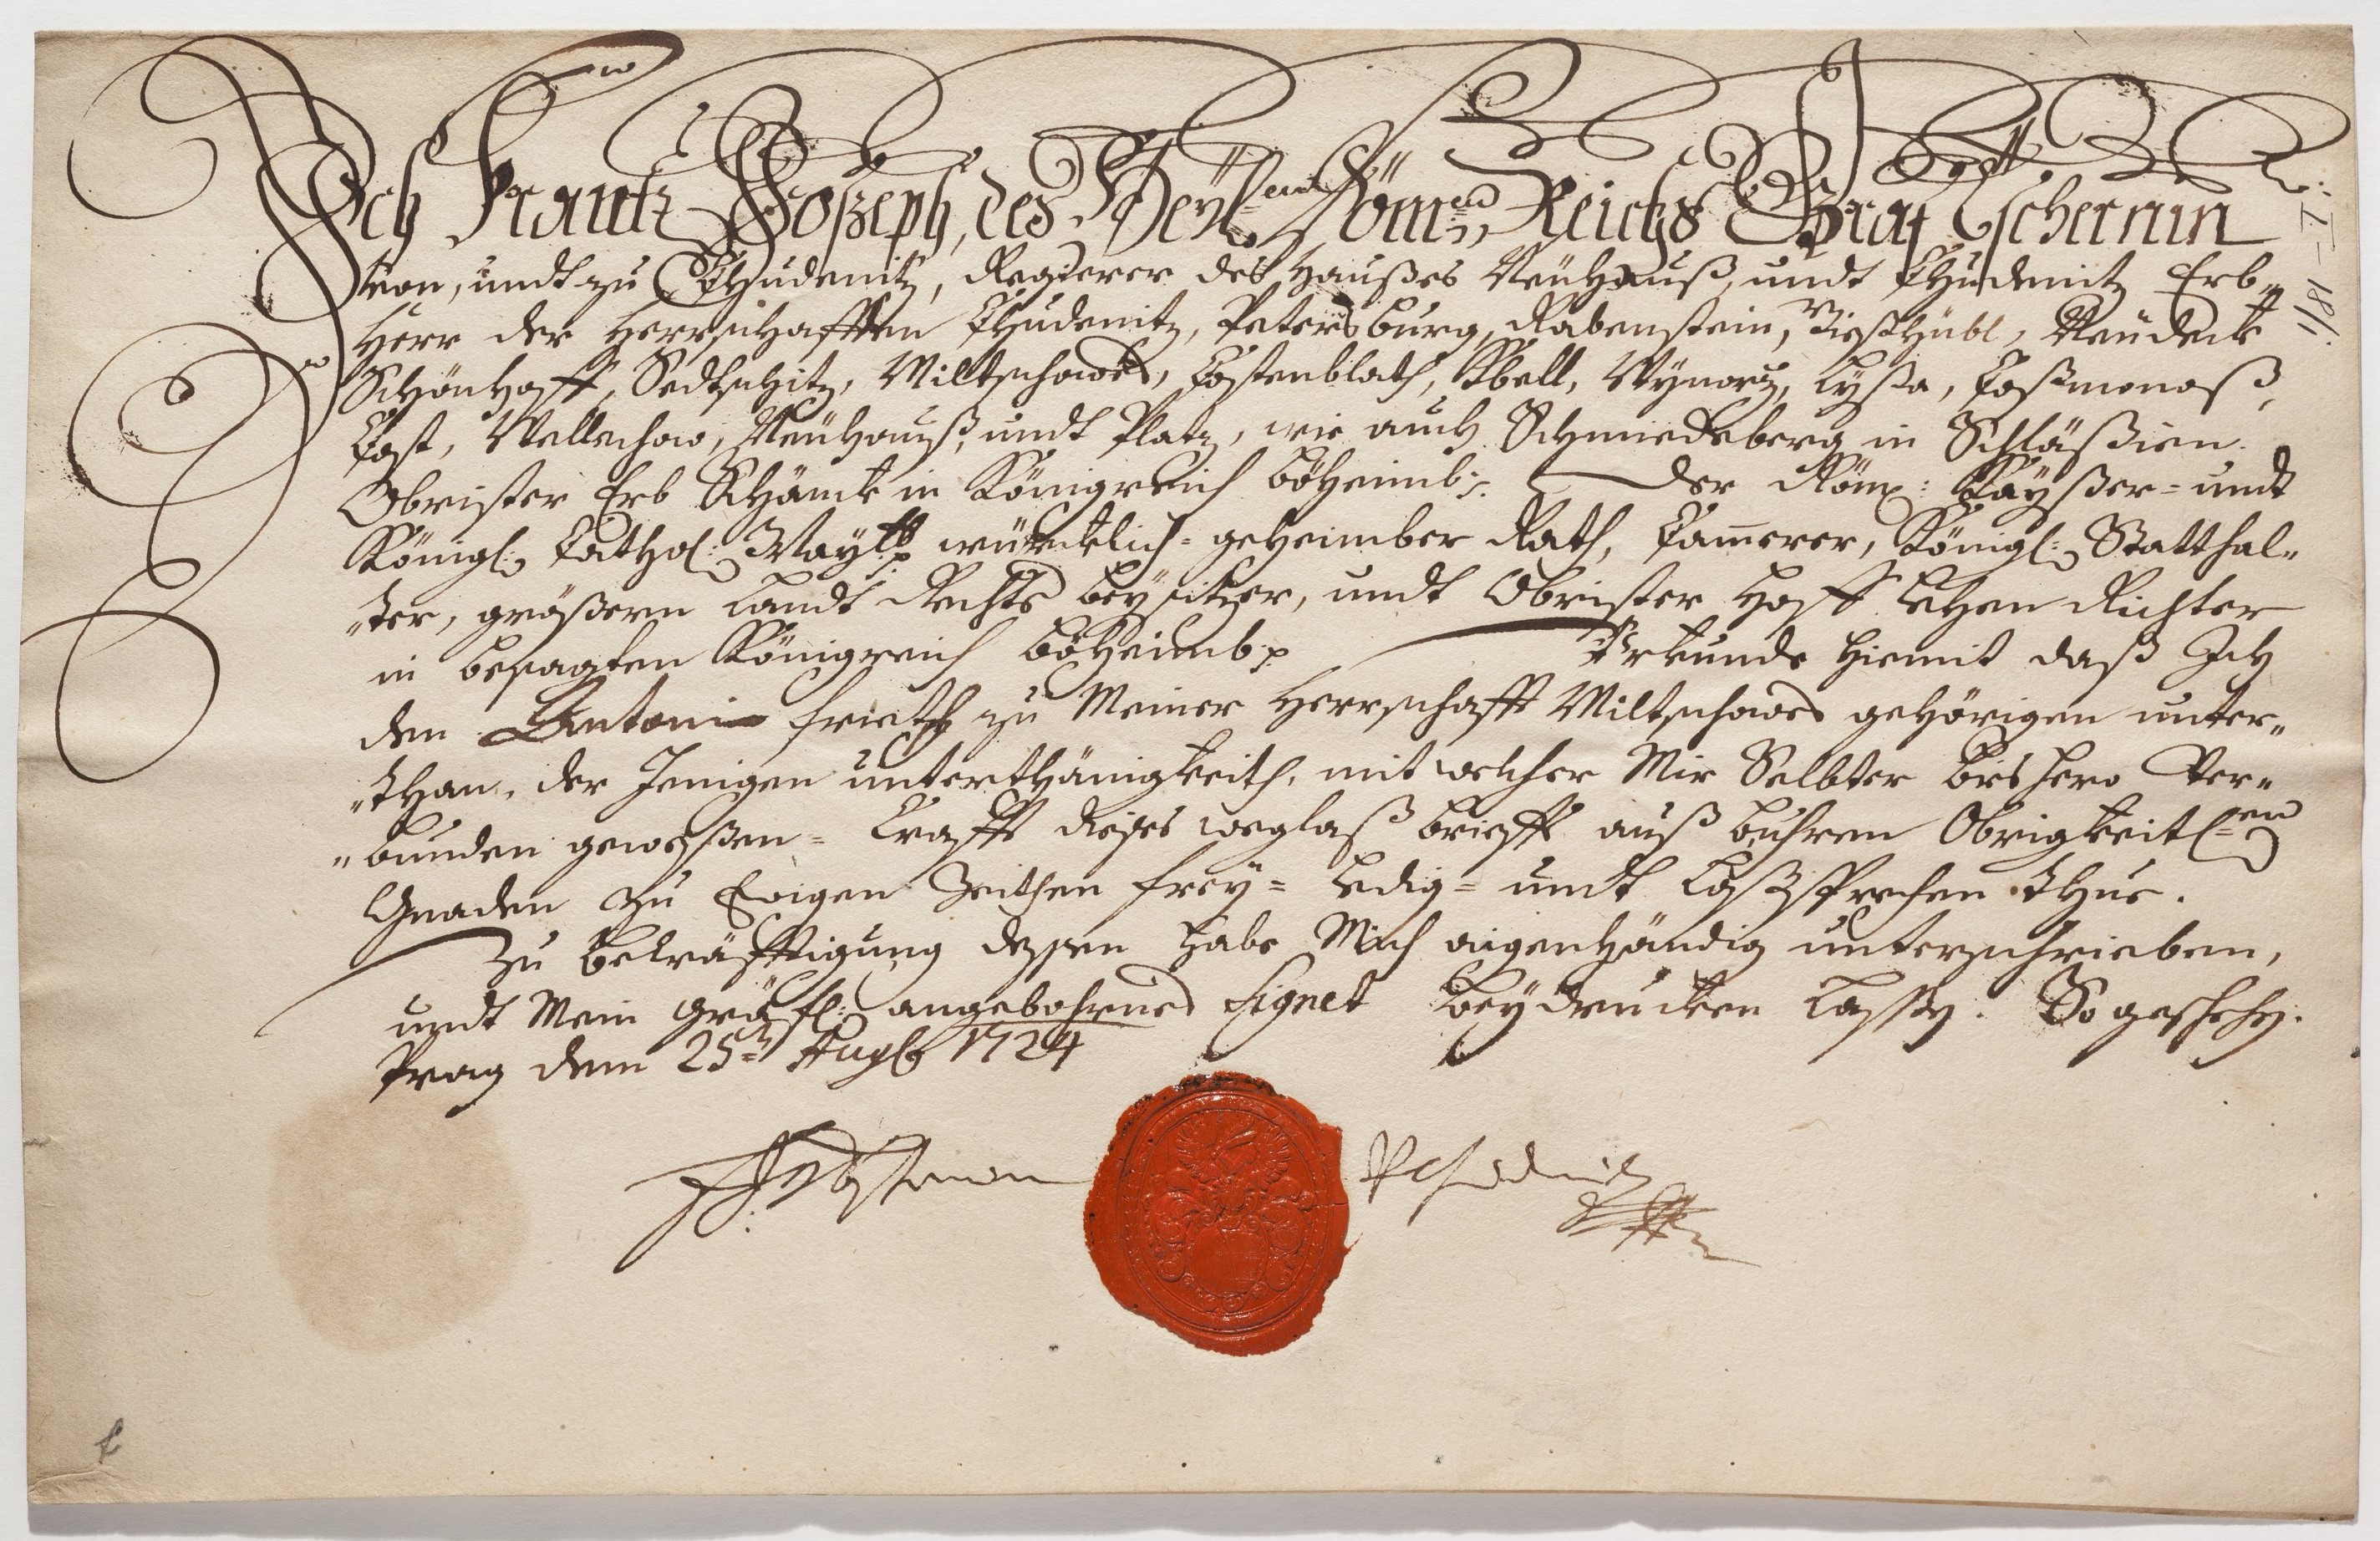 Ich Frantz Joszeph, des Heyl. Röm. Reichs Graf Tschernin
von, undt zu Chudenitz, Regierer des Haußes Neühauß, undt Chudenitz Erb„
Herr der Herrschafften Chudenitz, Petersburg, Rabenstein, Gießhübl, Neudeck
Schönhoff, Sedtschitz, Miltschowes, Costenblath, Kbell, Wynorz, Lyßa, Coßmonoß,
Cost, Wellechow, Neühauß, undt Platz, wie auch Schmiedeberg in Schläßien
Obrister Erb Schänck in Königreich Böheimb: Der Röm: Kayßer= undt
Königl: Cathol: Mayt: würcklich= geheimber Rath, Cammerer, Königl: Statthal„
„ter, größern Landt Rechts Beysitzer, undt Obrister Hoff Lehen Richter
in besagten Königreich Böheimb: Urkunde hiemit daß Ich
den Antoni zu Meiner Herrschafft Miltschowes gehörigen unter„
„than, der Jenigen unterthänigkeith, mit welcher Mir Selbter bis hero Ver„
„bunden geweßen= Krafft dießes weglaß brieffs auß Obrigkeitl:en
Gnaden zu Ewigen Zeithen frey= Ledig= undt Loßsprechen thue.
Zu Bekräfftigung deßen habe Mich aigenhändig unterschrieben,
undt Mein gräfl: angebohrnes Signet beydrucken Laßen. So geschehen
Prag den 25ten Aug 1724